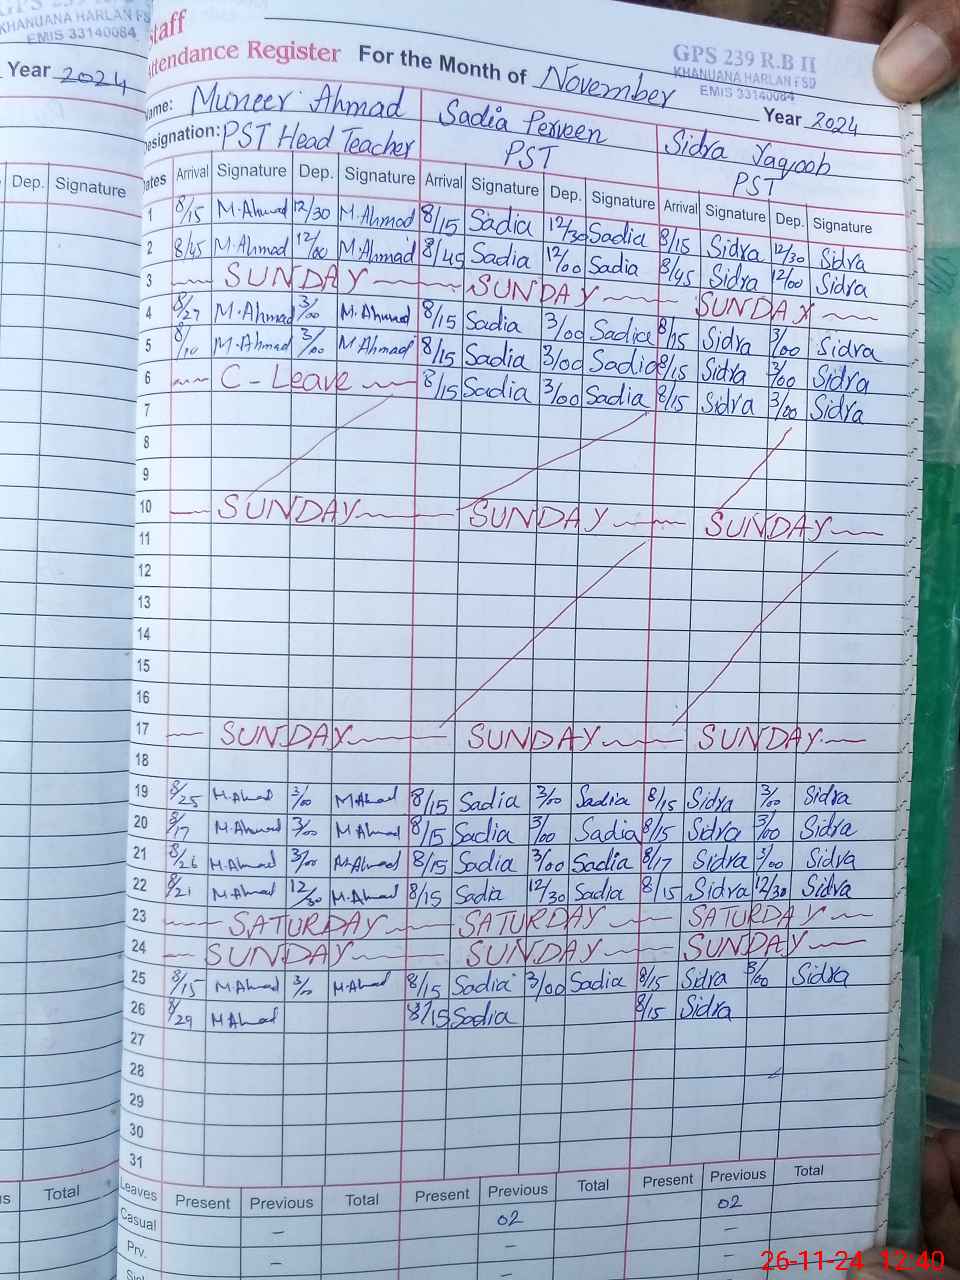 GPS
KHANUANA HARLAN FS
EMIS 33140084
Year 2024
Dep. Signature
Total
Staff
Attendance Register For the Month of November
GPS 239 R.B II
KHANUANA HARLAN FSD
EMIS 33140084
Year 2024
Name: Muneer Ahmad Sadia Perveen Sidra Yaqoob
Designation: PST Head Teacher PST PST
Dates Arrival Signature Dep. Signature Arrival Signature Dep. Signature Arrival Signature Dep. Signature
1 8/15 M.Ahmad 12/30 M.Ahmad 8/15 Sadia 12/30 Sadia 8/15 Sidra 12/30 Sidra
2 8/45 M.Ahmad 12/00 M.Ahmad 8/45 Sadia 12/00 Sadia 8/45 Sidra 12/00 Sidra
3 SUNDAY SUNDAY SUNDAY
4 8/27 M.Ahmad 3/00 M.Ahmad 8/15 Sadia 3/00 Sadia 8/15 Sidra 3/00 Sidra
5 8/10 M.Ahmad 3/00 M.Ahmad 8/15 Sadia 3/00 Sadia 8/15 Sidra 3/00 Sidra
6 C-Leave 8/15 Sadia 3/00 Sadia 8/15 Sidra 3/00 Sidra
7
8
9
10 SUNDAY SUNDAY SUNDAY
11
12
13
14
15
16
17 SUNDAY SUNDAY SUNDAY
18
19 8/25 M.Ahmad 3/00 M.Ahmad 8/15 Sadia 3/00 Sadia 8/15 Sidra 3/00 Sidra
20 8/17 M.Ahmad 3/00 M.Ahmad 8/15 Sadia 3/00 Sadia 8/15 Sidra 3/00 Sidra
21 8/26 M.Ahmad 3/00 M.Ahmad 8/15 Sadia 3/00 Sadia 8/17 Sidra 3/00 Sidra
22 8/21 M.Ahmad 12/30 M.Ahmad 8/15 Sadia 12/30 Sadia 8/15 Sidra 12/30 Sidra
23 SATURDAY SATURDAY SATURDAY
24 SUNDAY SUNDAY SUNDAY
25 8/15 M.Ahmad 3/00 M.Ahmad 8/15 Sadia 3/00 Sadia 8/15 Sidra 3/00 Sidra
26 8/29 M.Ahmad 8/15 Sadia 8/15 Sidra
27
28
29
30
31
Leaves Present Previous Total Present Previous Total Present Previous Total
Casual – 02 02
Prv. – – –
26-11-24 12:40